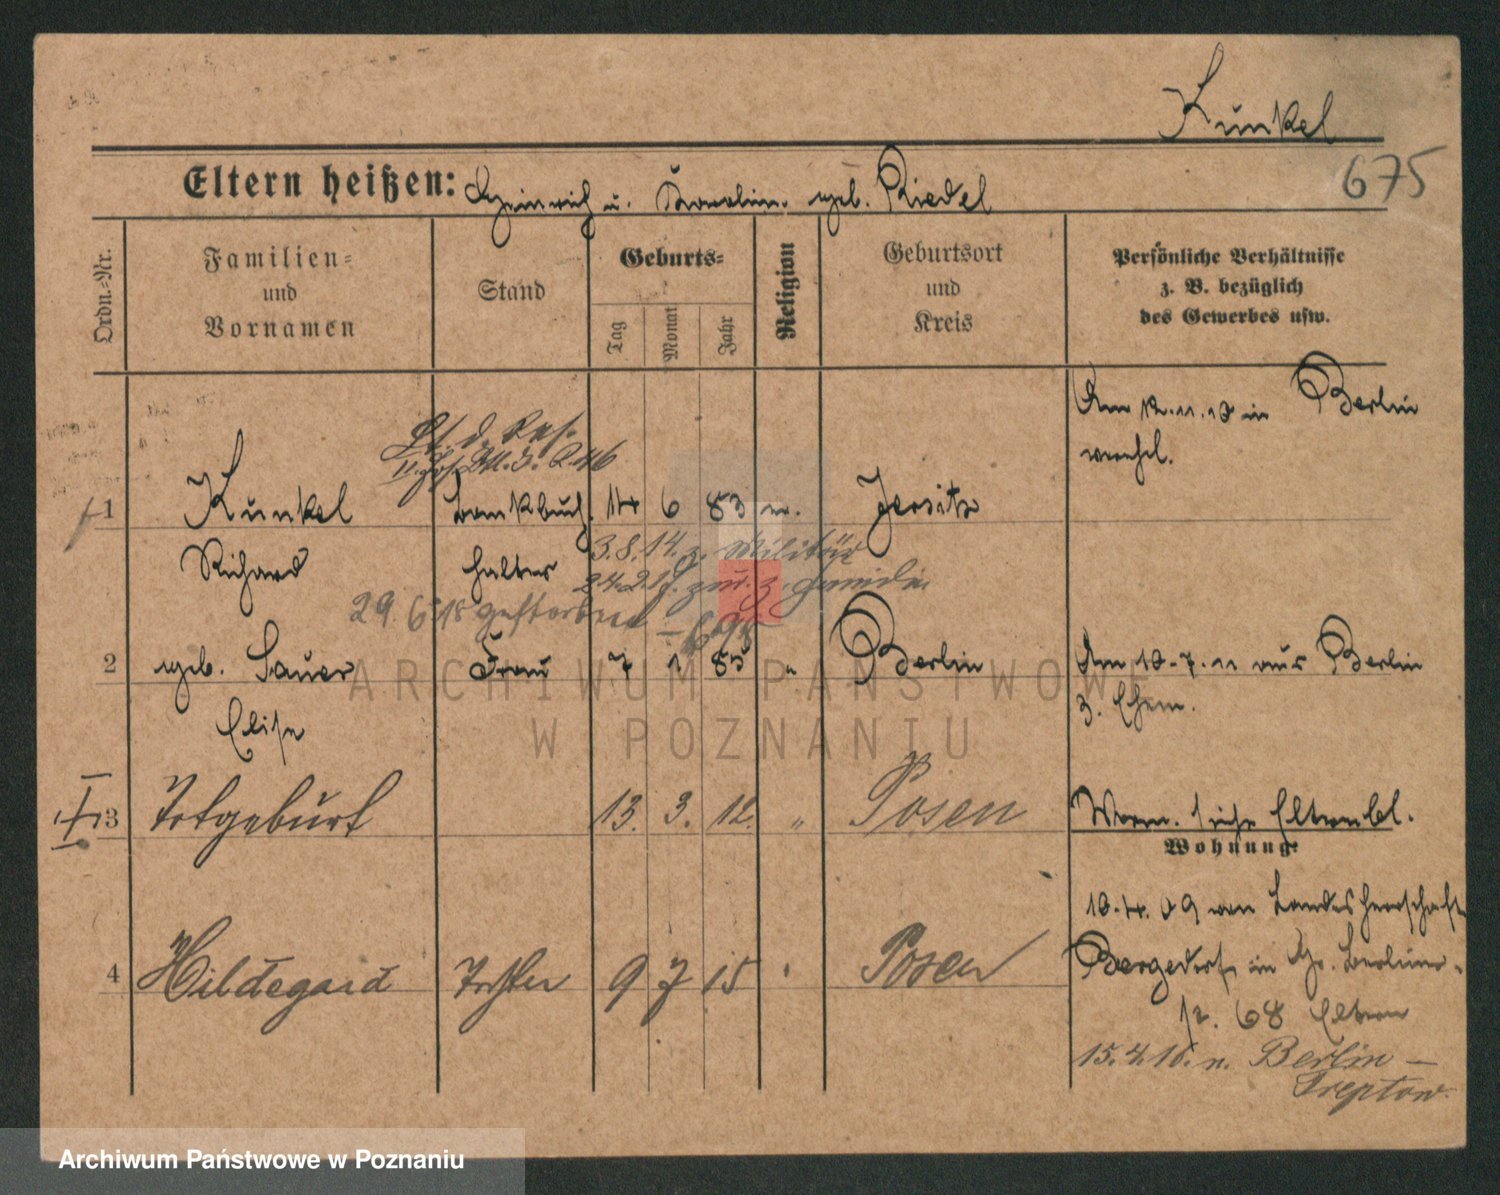 Kunkel
675
Eltern heißen: Heinrich u. Karoline geb. Riedel
Ordn.-Nr.
Familien-
und
Vornamen
Stand
Geburts-
Tag
Monat
Jahr
Religion
Geburtsort
und
Kreis
Persönliche Verhältnisse
z. B. bezüglich
des Gewerbes usw.
in Berlin
1 Kunkel Bankbuch 14 6 83 Jersitz
Richard halter 3.8.14. z. Militär
29. 6 18 gestorben
2 geb. Sauer Frau 7 1 85 " Berlin
Elise
Am 10.7.11 aus Berlin
z. Ehem.
3 Totgeburt 13. 3. 12. " Posen
Vorm. siehe Elternbl.
Wohnung:
4 Hildegard Tochter 9 7 15 " Posen
10.4.09 von Landsherrschaft
Bergedorf in Gr. Berliner-
68 Eltern
15.4.18. n. Berlin-
Treptow.
ARCHIWUM PAŃSTWOWE
W POZNANIU
Archiwum Państwowe w Poznaniu